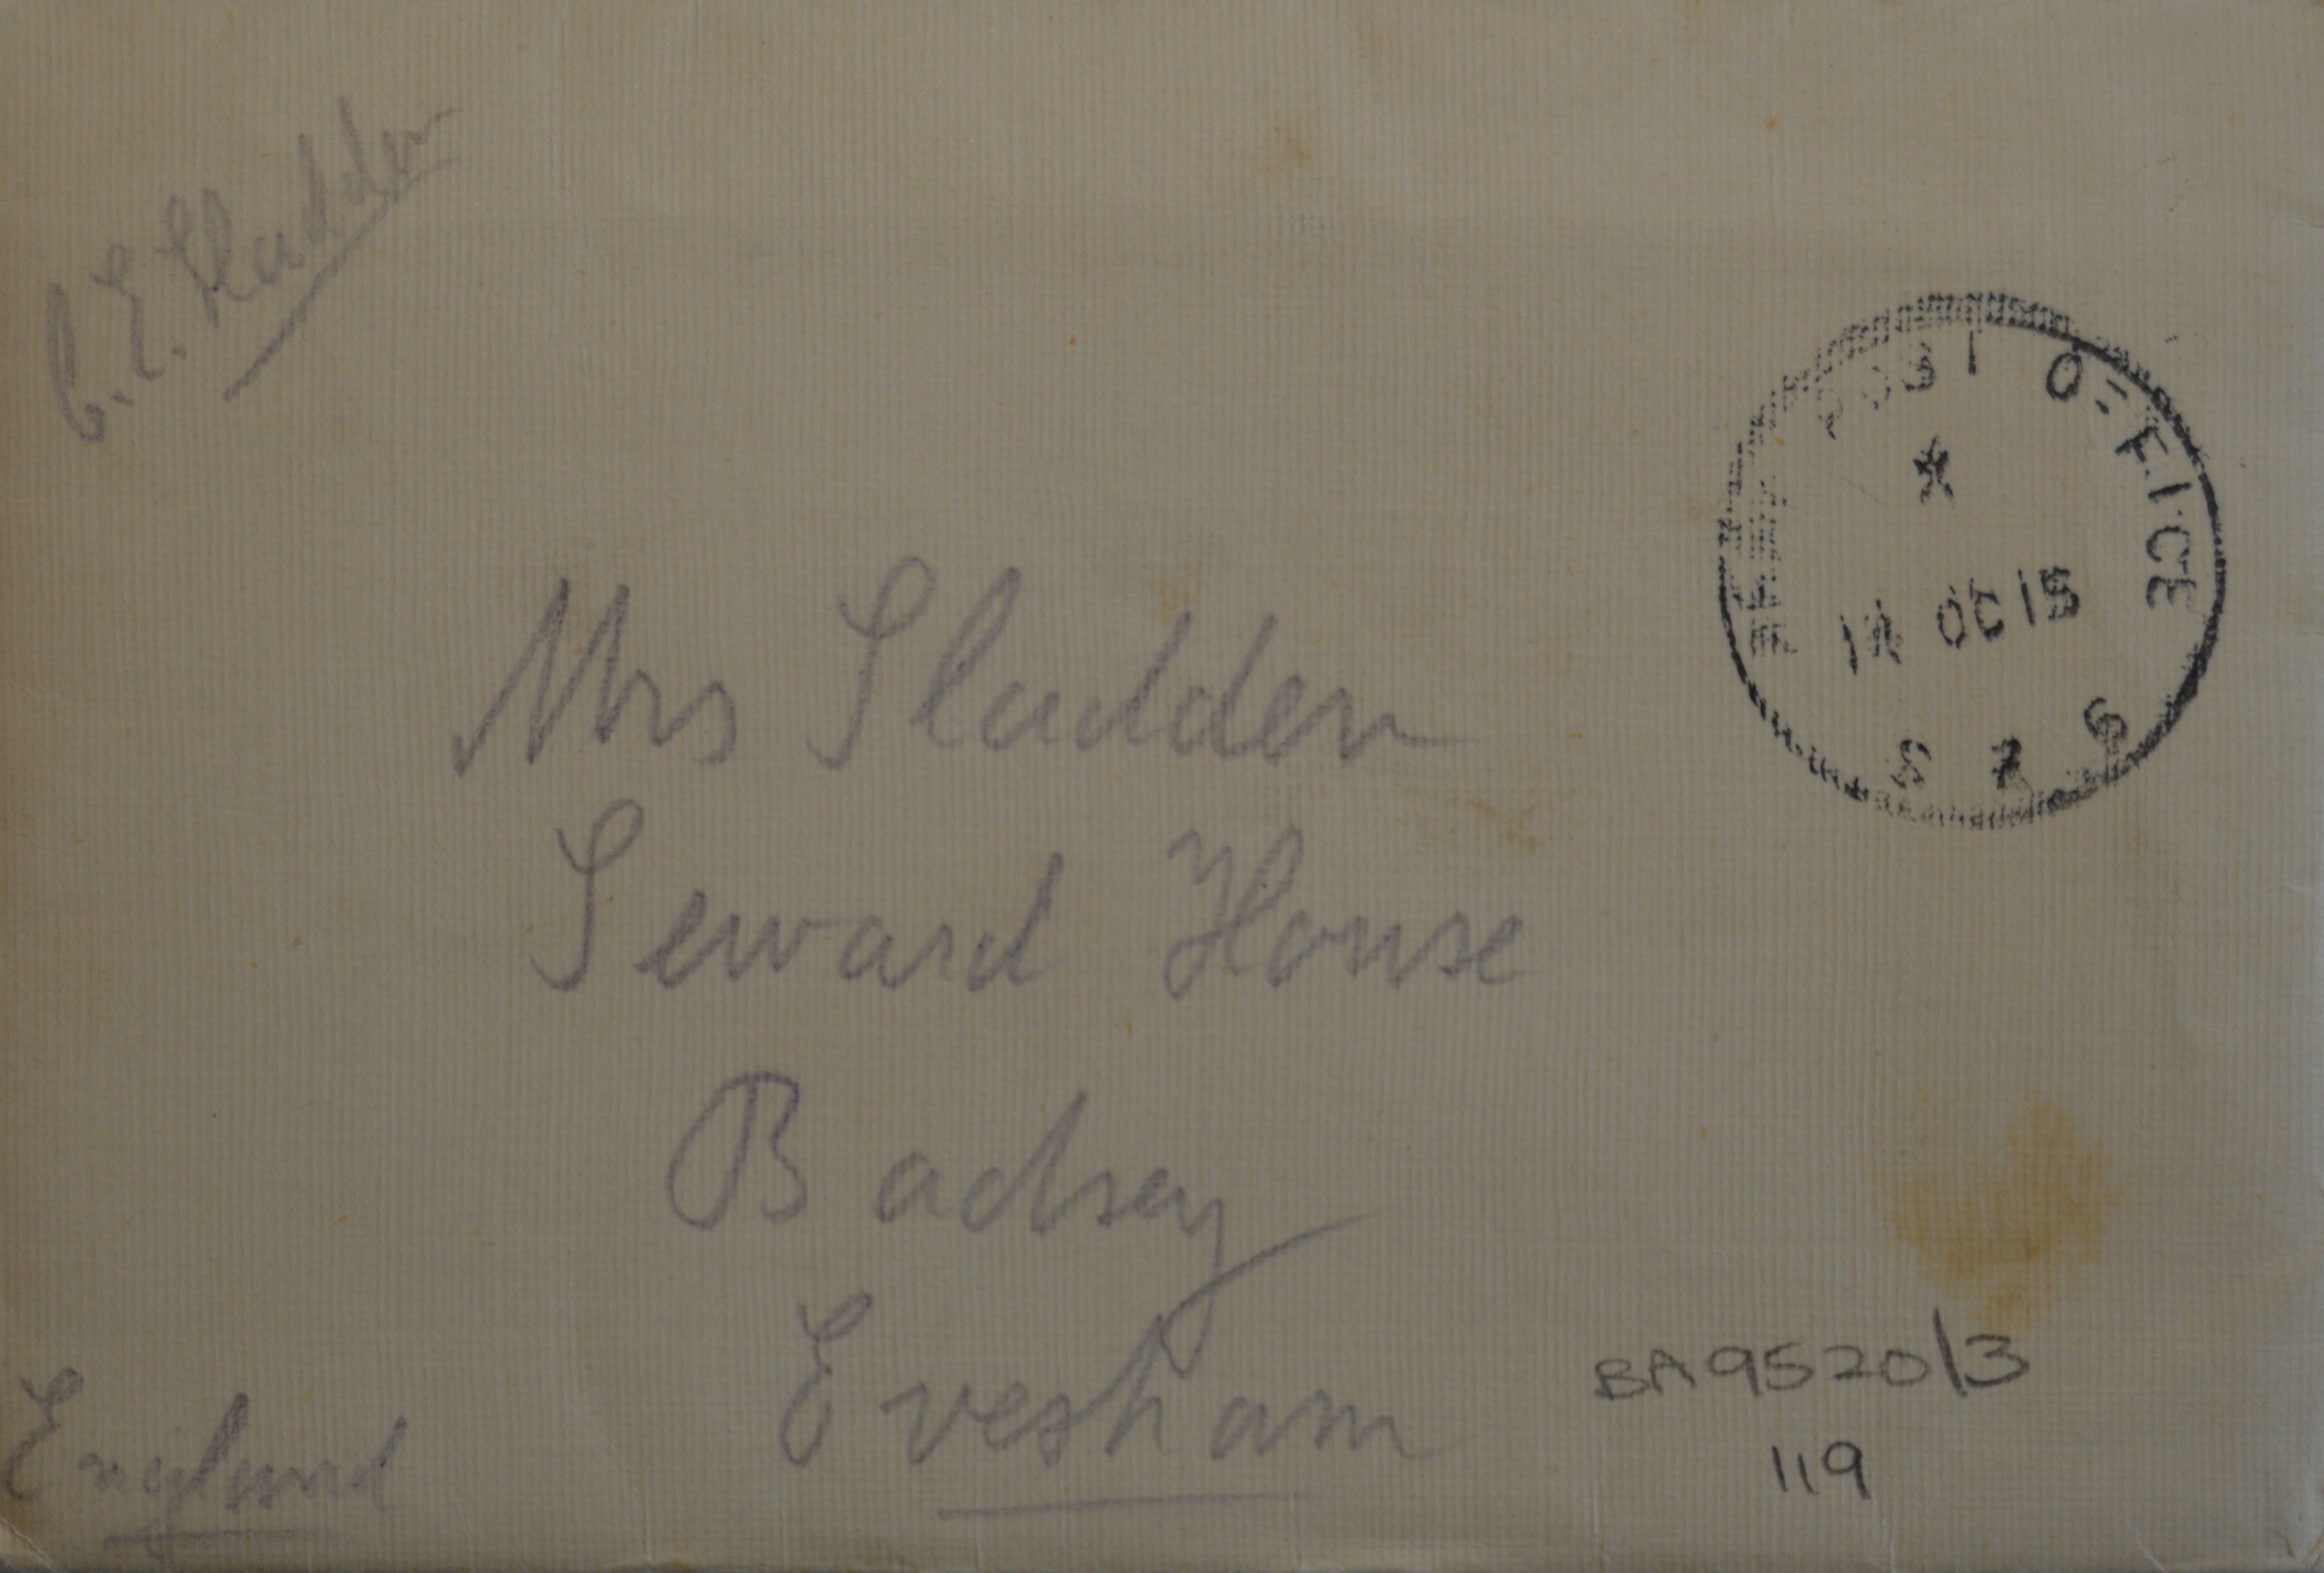 C. E. Sladden
POST OFFICE
OC 15
S
Mrs Sladden
Seward House
Badsey
Evesham
England
BA9520/3
119